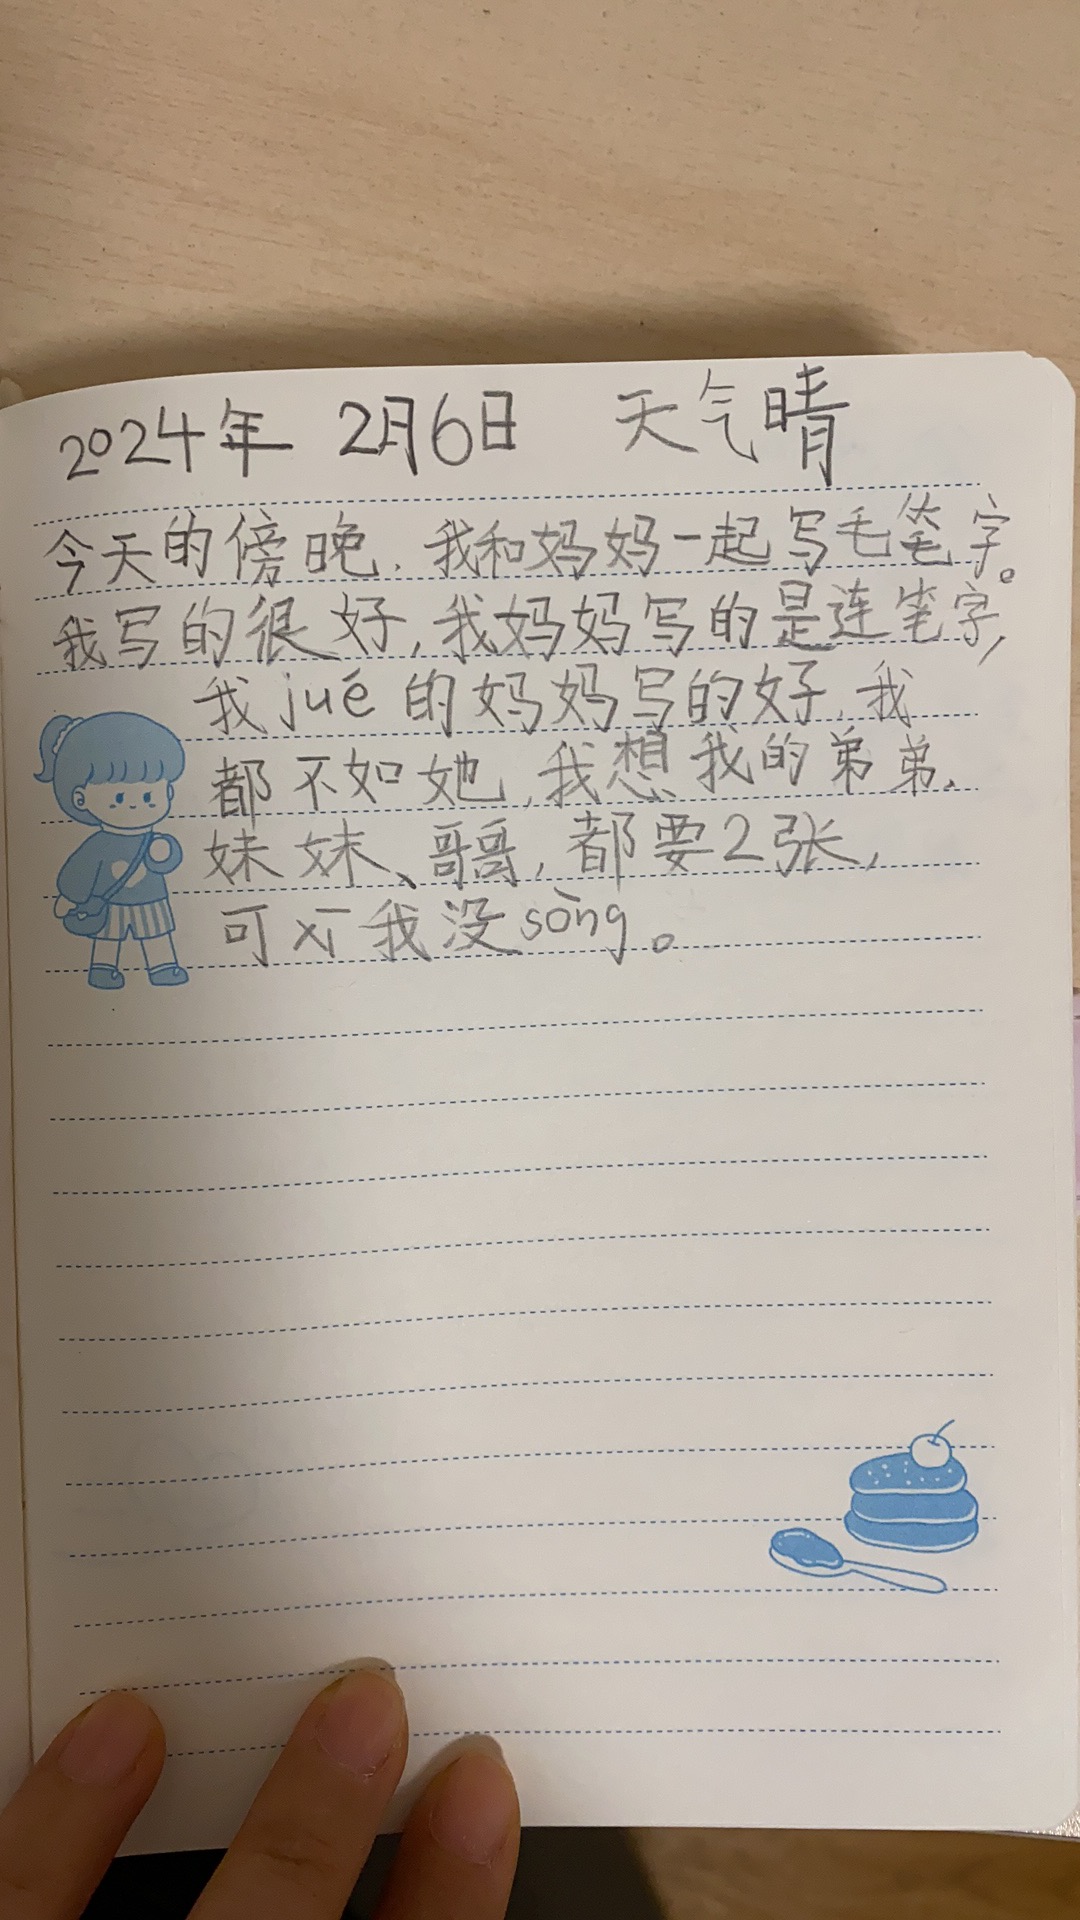 2024年 2月6日 天气晴
今天的傍晚，我和妈妈一起写毛笔字。
我写的很好，我妈妈写的是连笔字，
我jué的妈妈写的好，我
都不如她，我想我的弟弟、
妹妹、哥哥，都要2张，
可 我没sòng。